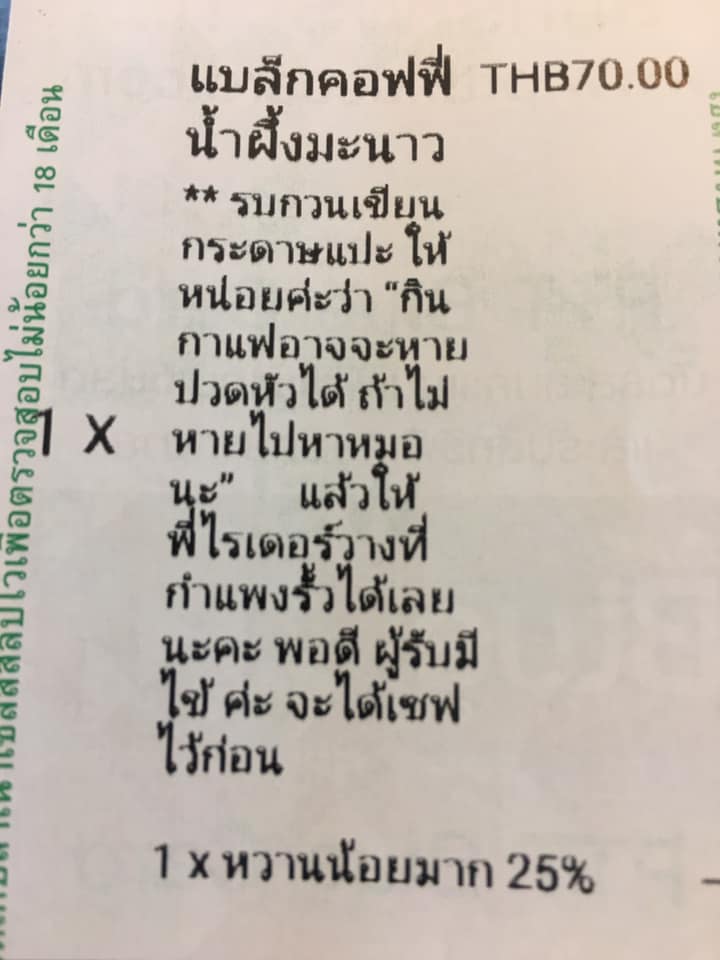 แบล็กคอฟฟี่ THB70.00
น้ำผึ้งมะนาว
** รบกวนเขียน
กระดาษแปะ ให้
หน่อยค่ะว่า "กิน
กาแฟอาจจะหาย
ปวดหัวได้ ถ้าไม่
1 X หายไปหาหมอ
นะ" แล้วให้
พี่ไรเดอร์วางที่
กำแพงรั้วได้เลย
นะคะ พอดี ผู้รับมี
ไข้ ค่ะ จะได้เซฟ
ไว้ก่อน
1 x หวานน้อยมาก 25%
ไว้เพื่อตรวจสอบไม่น้อยกว่า 18 เดือน